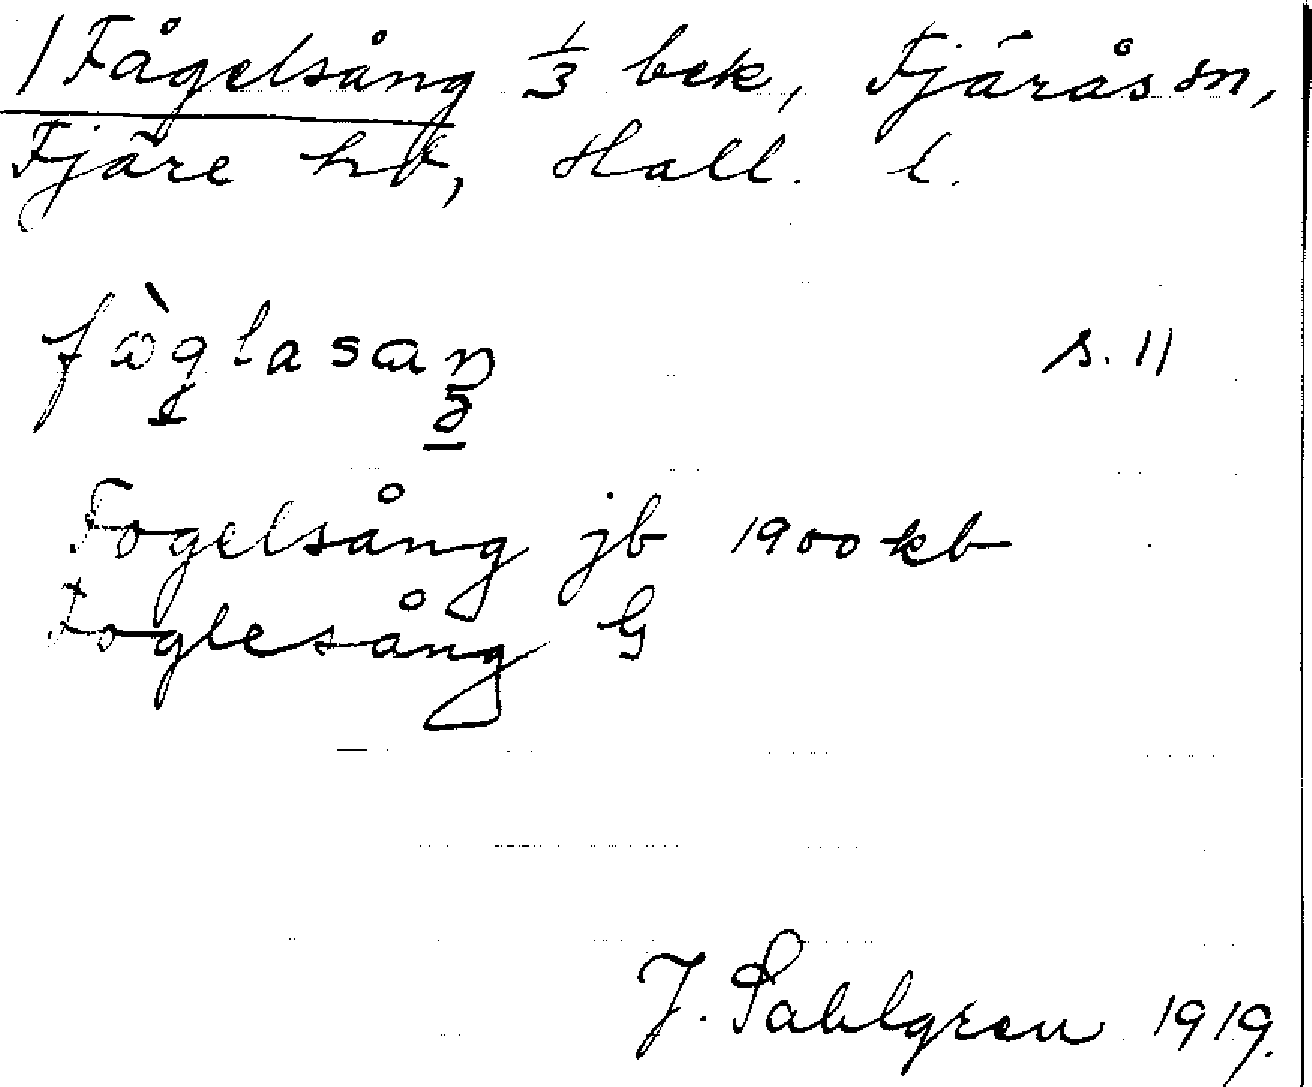 / Fågelsång 1/3 bek, Fjärås sn,
Fjäre hd, Hall. l.
fòglasaŋ s. 11
Fogelsång jb 1900 kb
Foglesång G
J. Sahlgren 1919.